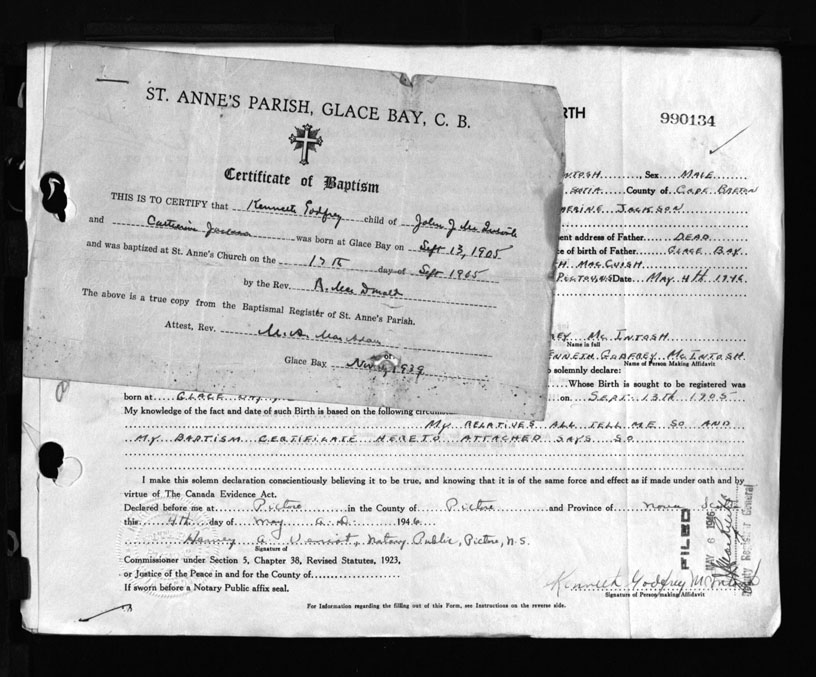 ST. ANNE'S PARISH, GLACE BAY, C. B.
Certificate of Baptism
THIS IS TO CERTIFY that Kenneth Godfrey child of John J
and Catherine was born at Glace Bay on Sept 13, 1905
and was baptized at St. Anne's Church on the 17th day of Sept 1905
by the Rev. R. MacDonald
The above is a true copy from the Baptismal Register of St. Anne's Parish.
Attest, Rev. M. A.
Glace Bay 1939
RTH
990134
NTOSH, Sex MALE
SCOTIA County of CAPE BRETON
HERINE JACKSON
ent address of Father DEAD
ce of birth of Father GLACE BAY
H MACCUISH
Date MAY 4th 1946
REY MCINTOSH
Name in full
ENNETH GODFREY MCINTOSH
Name of Person Making Affidavit
o solemnly declare:
Whose Birth is sought to be registered was
born at GLACE BAY on SEPT 13TH 1905
My knowledge of the fact and date of such Birth is based on the following
MY RELATIVES ALL TELL ME SO AND
MY BAPTISM CERTIFICATE HERETO ATTACHED SAYS SO
I make this solemn declaration conscientiously believing it to be true, and knowing that it is of the same force and effect as if made under oath and by
virtue of The Canada Evidence Act.
Declared before me at Pictou in the County of Pictou and Province of Nova
this 4th day of May A.D. 1946
Harvey A. Notary Public, Pictou, N.S.
Signature of
Commissioner under Section 5, Chapter 38, Revised Statutes, 1923,
or Justice of the Peace in and for the County of
If sworn before a Notary Public affix seal.
FILED
MAY 6 1946
Deputy Registrar General
Kenneth Godfrey McIntosh
Signature of Person making Affidavit
For Information regarding the filling out of this Form, see Instructions on the reverse side.